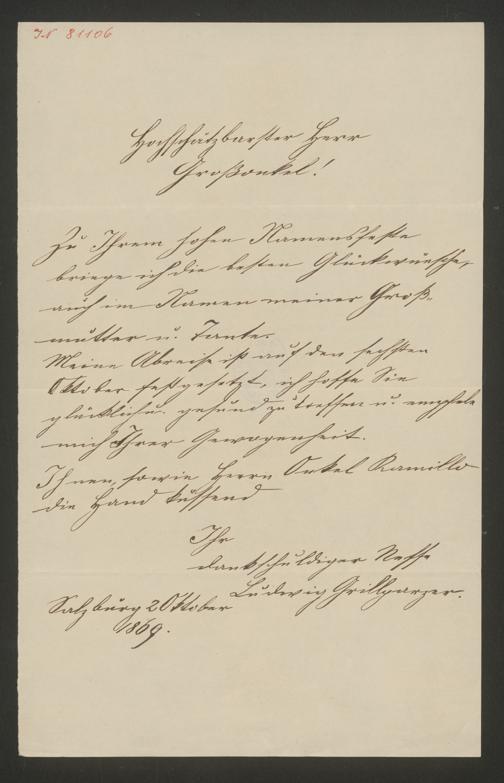 IN 81106
Hochschätzbarster Herr
Großonkel!
Zu Ihrem hohen Namensfeste
bringe ich die besten Glückwünsche,
auch im Namen meiner Groß-
mutter u. Tante.
Meine Abreise ist auf den sechsten
Oktober festgesetzt, ich hoffe Sie
glücklich u. gesund zu treffen u. empfehle
mich Ihrer Gewogenheit.
Ihnen, sowie Herrn Onkel Kamillo
die Hand küssend
Ihr
dankschuldiger Neffe
Ludwig Grillparzer.
Salzburg 2 Oktober
1869.